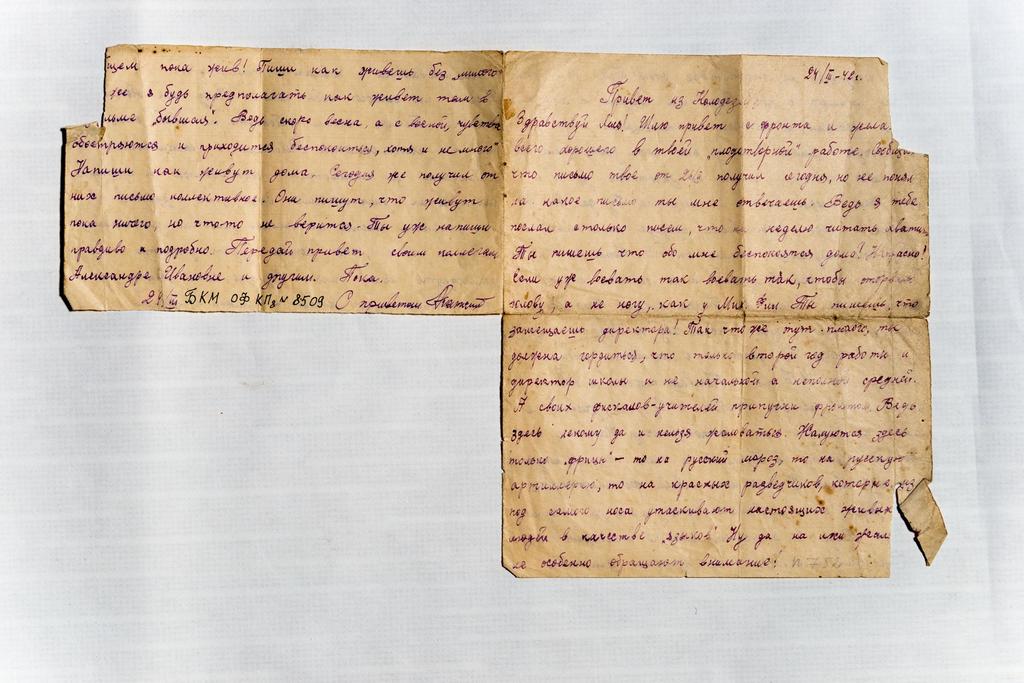 24/III-42г.
Привет из Колодезей
Здравствуй Аня! Шлю привет с фронта и жела
всего хорошего в твоей "плодотворной" работе. Сообщаю
что письмо твое от получил сегодня, но не понял
на какое письмо ты мне отвечаешь. Ведь я тебе
послал столько писем, что на неделю читать хватит
Ты пишешь что обо мне беспокоятся дома! Напрасно!
Если уж воевать так воевать так, чтобы оторвало
голову, а не ногу, как у Мих. Фил. Ты пишешь, что
замещаешь директора! Так что же тут плохого, ты
должна гордиться, что только второй год работы и
директор школы и не начальной а неполной средней.
А своих фискалов-учителей припугни фронтом. Ведь
здесь некому да и нельзя жаловаться. Жалуются здесь
только "фрицы" – то на русский мороз, то на русскую
артиллерию, то на красных разведчиков, которые из
под самого носа утаскивают настоящих живых
людей в качестве "языков". Ну да на них жал
не особенно обращают внимание! N 782
щем пока жив! Пиши как живешь без "милого"
же я буду предполагать как живет там в
"бывшая". Ведь скоро весна, а с весной, чувства
обостряются и приходится беспокоиться, хотя и немного"
Напиши как живут дома. Сегодня же получил от
них письмо коллективное. Они пишут, что живут
пока ничего, но что-то не верится. Ты уж напиши
правдиво и подробно. Передай привет своим
Александре Ивановне и другим. Пока.
24 III БКМ ОФ КП₂ № 8509 С приветом